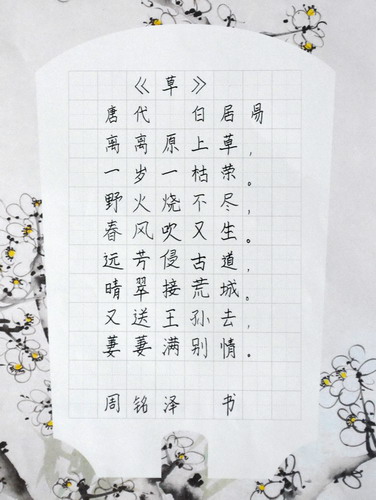 《草》
唐代 白居易
离离原上草，
一岁一枯荣。
野火烧不尽，
春风吹又生。
远芳侵古道，
晴翠接荒城。
又送王孙去，
萋萋满别情。
周铭泽 书